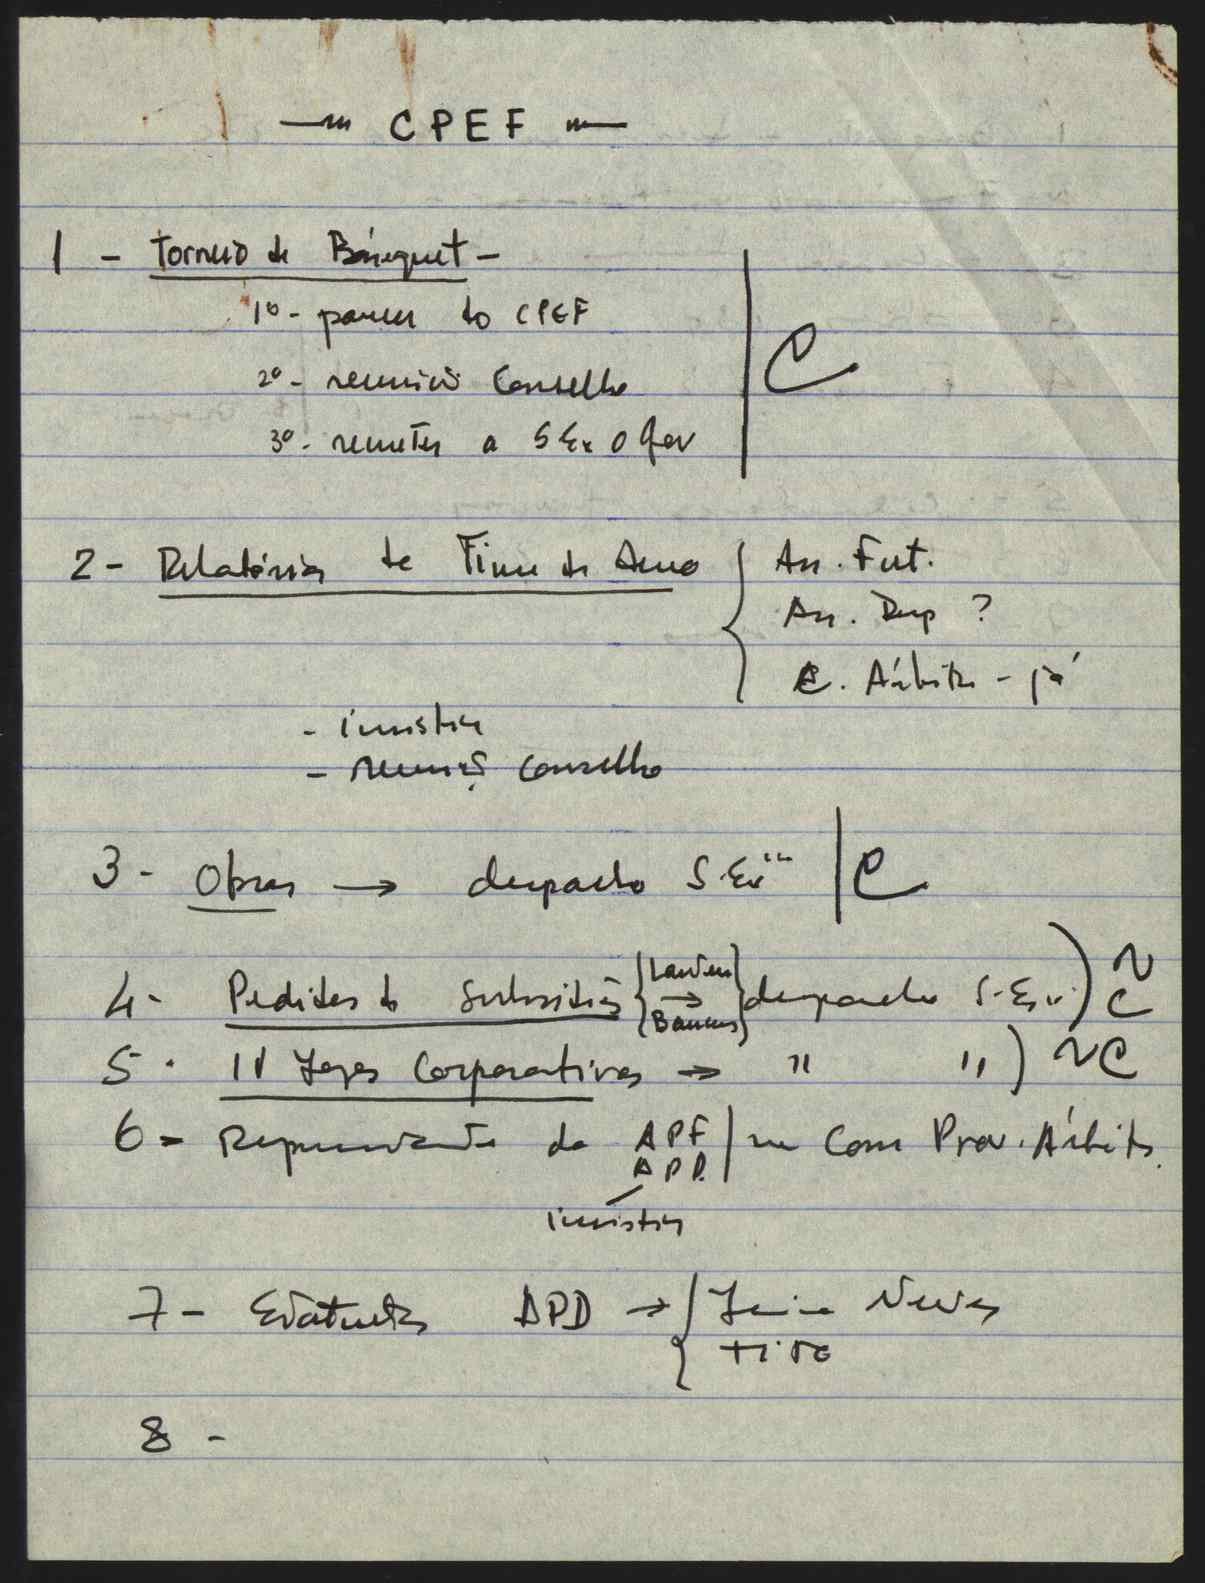 CPEF
1 - Torneio de Básquet -
1º - parecer do CPEF
2º - reunião Conselho
3º - remeter a S Ex o Gov
C
2 - Relatórios de Fim de Ano
An. Fut.
An. Dep ?
C. Árbitro - já
- insistir
- reunião Conselho
3 - Obras → despacho S. Exª
C
4 - Pedidos de Subsídios → despacho S. Ex
C
5 - IV Jogos Corporativos → " "
C
6 - Representante da APF na Com Prov. Árbitr.
APD.
insistir
7 - Estatutos APD → Jaime Neves
8 -